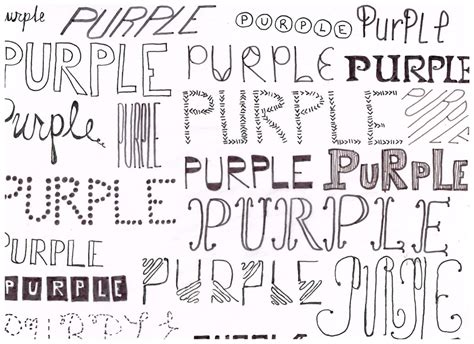 purple PURPLE PURPLE PurPLe
PURPLE PURPLE PURPLE
Purple PURPLE PURPLE
PURPLE PURPLE PuRPLE
PURPLE PURPLE
PURPLE PURPLE PURPLE
PURPLE